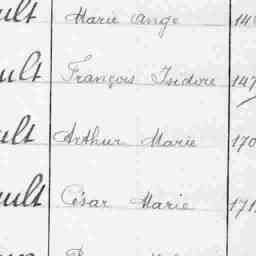 ult Marie Ange 14
ult François Isidore 147
ult Arthur Marie 170
ult César Marie 171